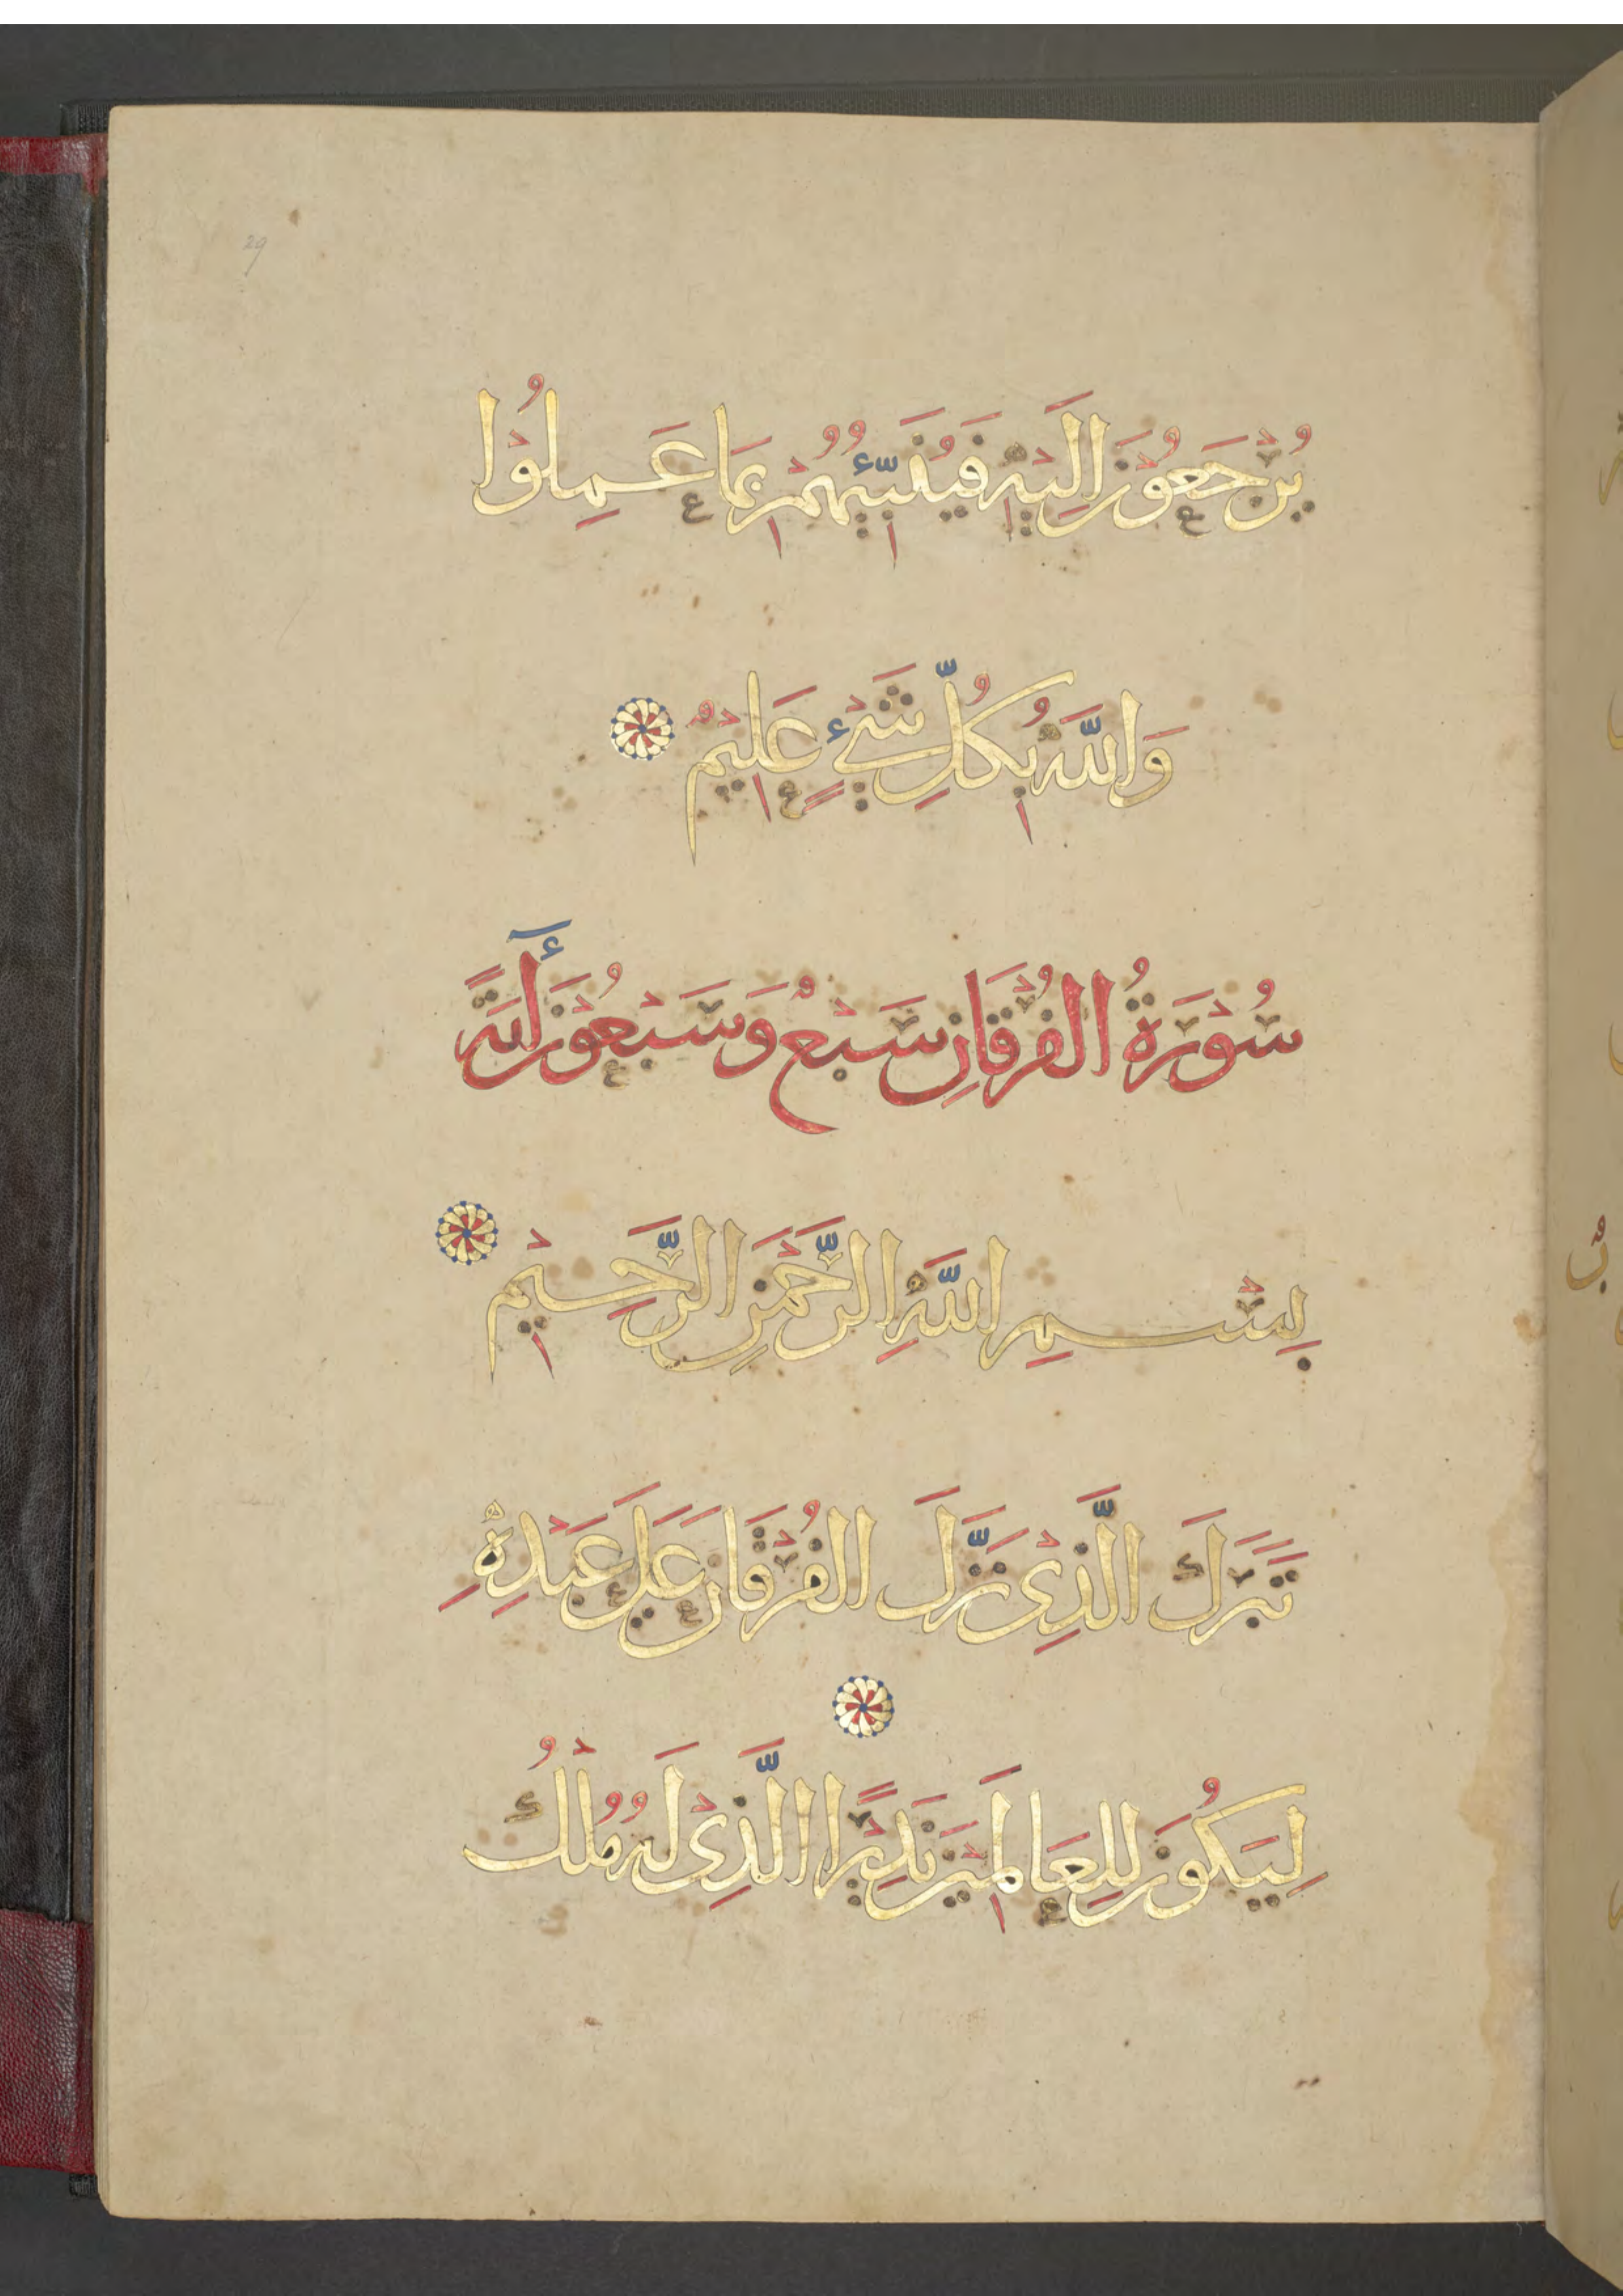 29
يُرْجَعُونَ إِلَيْهِ فَيُنَبِّئُهُمْ بِمَا عَمِلُوْا
وَاللَّهُ بِكُلِّ شَيْءٍ عَلِيْمٌ
سُوْرَةُ الْفُرْقَانِ سَبْعٌ وَسَبْعُوْنَ أٓيَةً
بِسْمِ اللَّهِ الرَّحْمَنِ الرَّحِيْمِ
تَبَرَكَ الَّذِى نَزَّلَ الْفُرْقَانَ عَلَى عَبْدِهِ
لِيَكُونَ لِلْعَالَمِيْنَ نَذِيْرًا الَّذِىْ لَهُ مُلْكُ